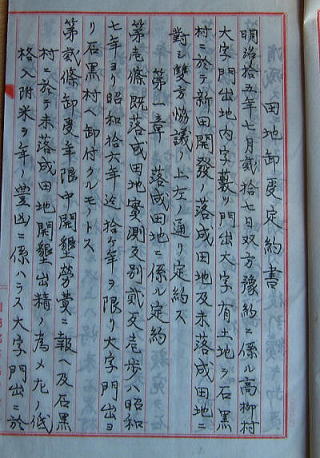 田地卸受定約書
明治拾五年七月貳拾七日双方豫約ニ係ル高柳村
大字門出地内字蓑リ門出大字有土地ヲ石黒
村ニ於テ新田開發ノ落成田地及未落成田地ニ
對シ雙方協議ノ上左ノ通リ定約ス
第一章 落成田地ニ係ル定約
第壱條 既落成田地實測反別貳町壱歩ハ昭和
七年ヨリ昭和拾六年迄拾ケ年ヲ限リ大字門出ヨ
リ石黒村ヘ卸付クルモノトス
第貳條 卸受年限中開墾労費ニ報ヘ及石黒
村ニ於テ未落成田地開墾出精ノ為メ左ノ低
格入附米ヲ年ノ豊凶ニ係ハラス大字門出ニ於